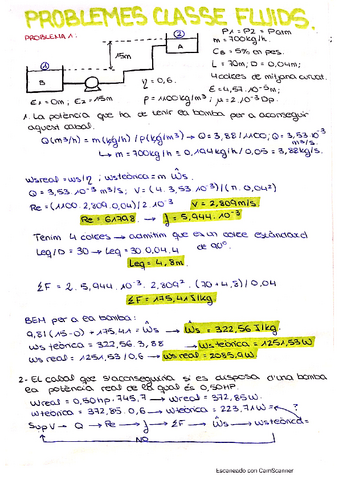 PROBLEMES CLASSE FLUIDS.
PROBLEMA 1:
P1 = P2 = Patm
m = 700kg/h
CB = 5% en pes.
L = 70m; D = 0,04m;
4 colzes de mitjana curvat.
ε = 4,57·10⁻⁵m;
ρ = 1100kg/m³; μ = 2·10⁻³
① ②
A
15m
B
η = 0,6.
z1 = 0m; z2 = 15m
1. La potència que ha de tenir la bomba per a aconseguir
aquest cabal.
Q(m³/h) = m(kg/h) / ρ(kg/m³) → Q = 3,88/1100; Q = 3,53·10⁻³
m³/s.
↳ m = 700kg/h = 0,194kg/h / 0,05 = 3,88kg/s.
ws real = ws/η; ws teòrica = m Ŵs.
Q = 3,53·10⁻³ m³/s; V = (4·3,53·10⁻³)/(π·0,04²) V = 2,809m/s
Re = (1100·2,809·0,04)/2·10⁻³
Re = 61798 → f = 5,944·10⁻³
Tenim 4 colzes → admitim que es un colze estàndard
de 90°.
Leq/D = 30 → Leq = 30·0,04·4
Leq = 4,8m.
ΣF = 2·5,944·10⁻³·2,809²·(70+4,8)/0,04
ΣF = 175,41J/kg.
BEM per a la bomba:
9,81(15-0) + 175,41 = Ŵs → Ŵs = 322,56J/kg.
Ws teòrica = 322,56·3,88 → Ws teòrica = 1251,53W
Ws real = 1251,53/0,6 → Ws real = 2085,9W
2- El cabal que s'aconseguiria si es disposa d'una bomba
la potència real de la qual és 0,50HP.
Wreal = 0,50HP·745,7 → Wreal = 372,85W.
Wteòrica = 372,85·0,6 → Wteòrica = 223,71W ?
Sup V → Q → Re → f → ΣF → Ŵs → Wsteòrica =
NO
Escaneado con CamScanner